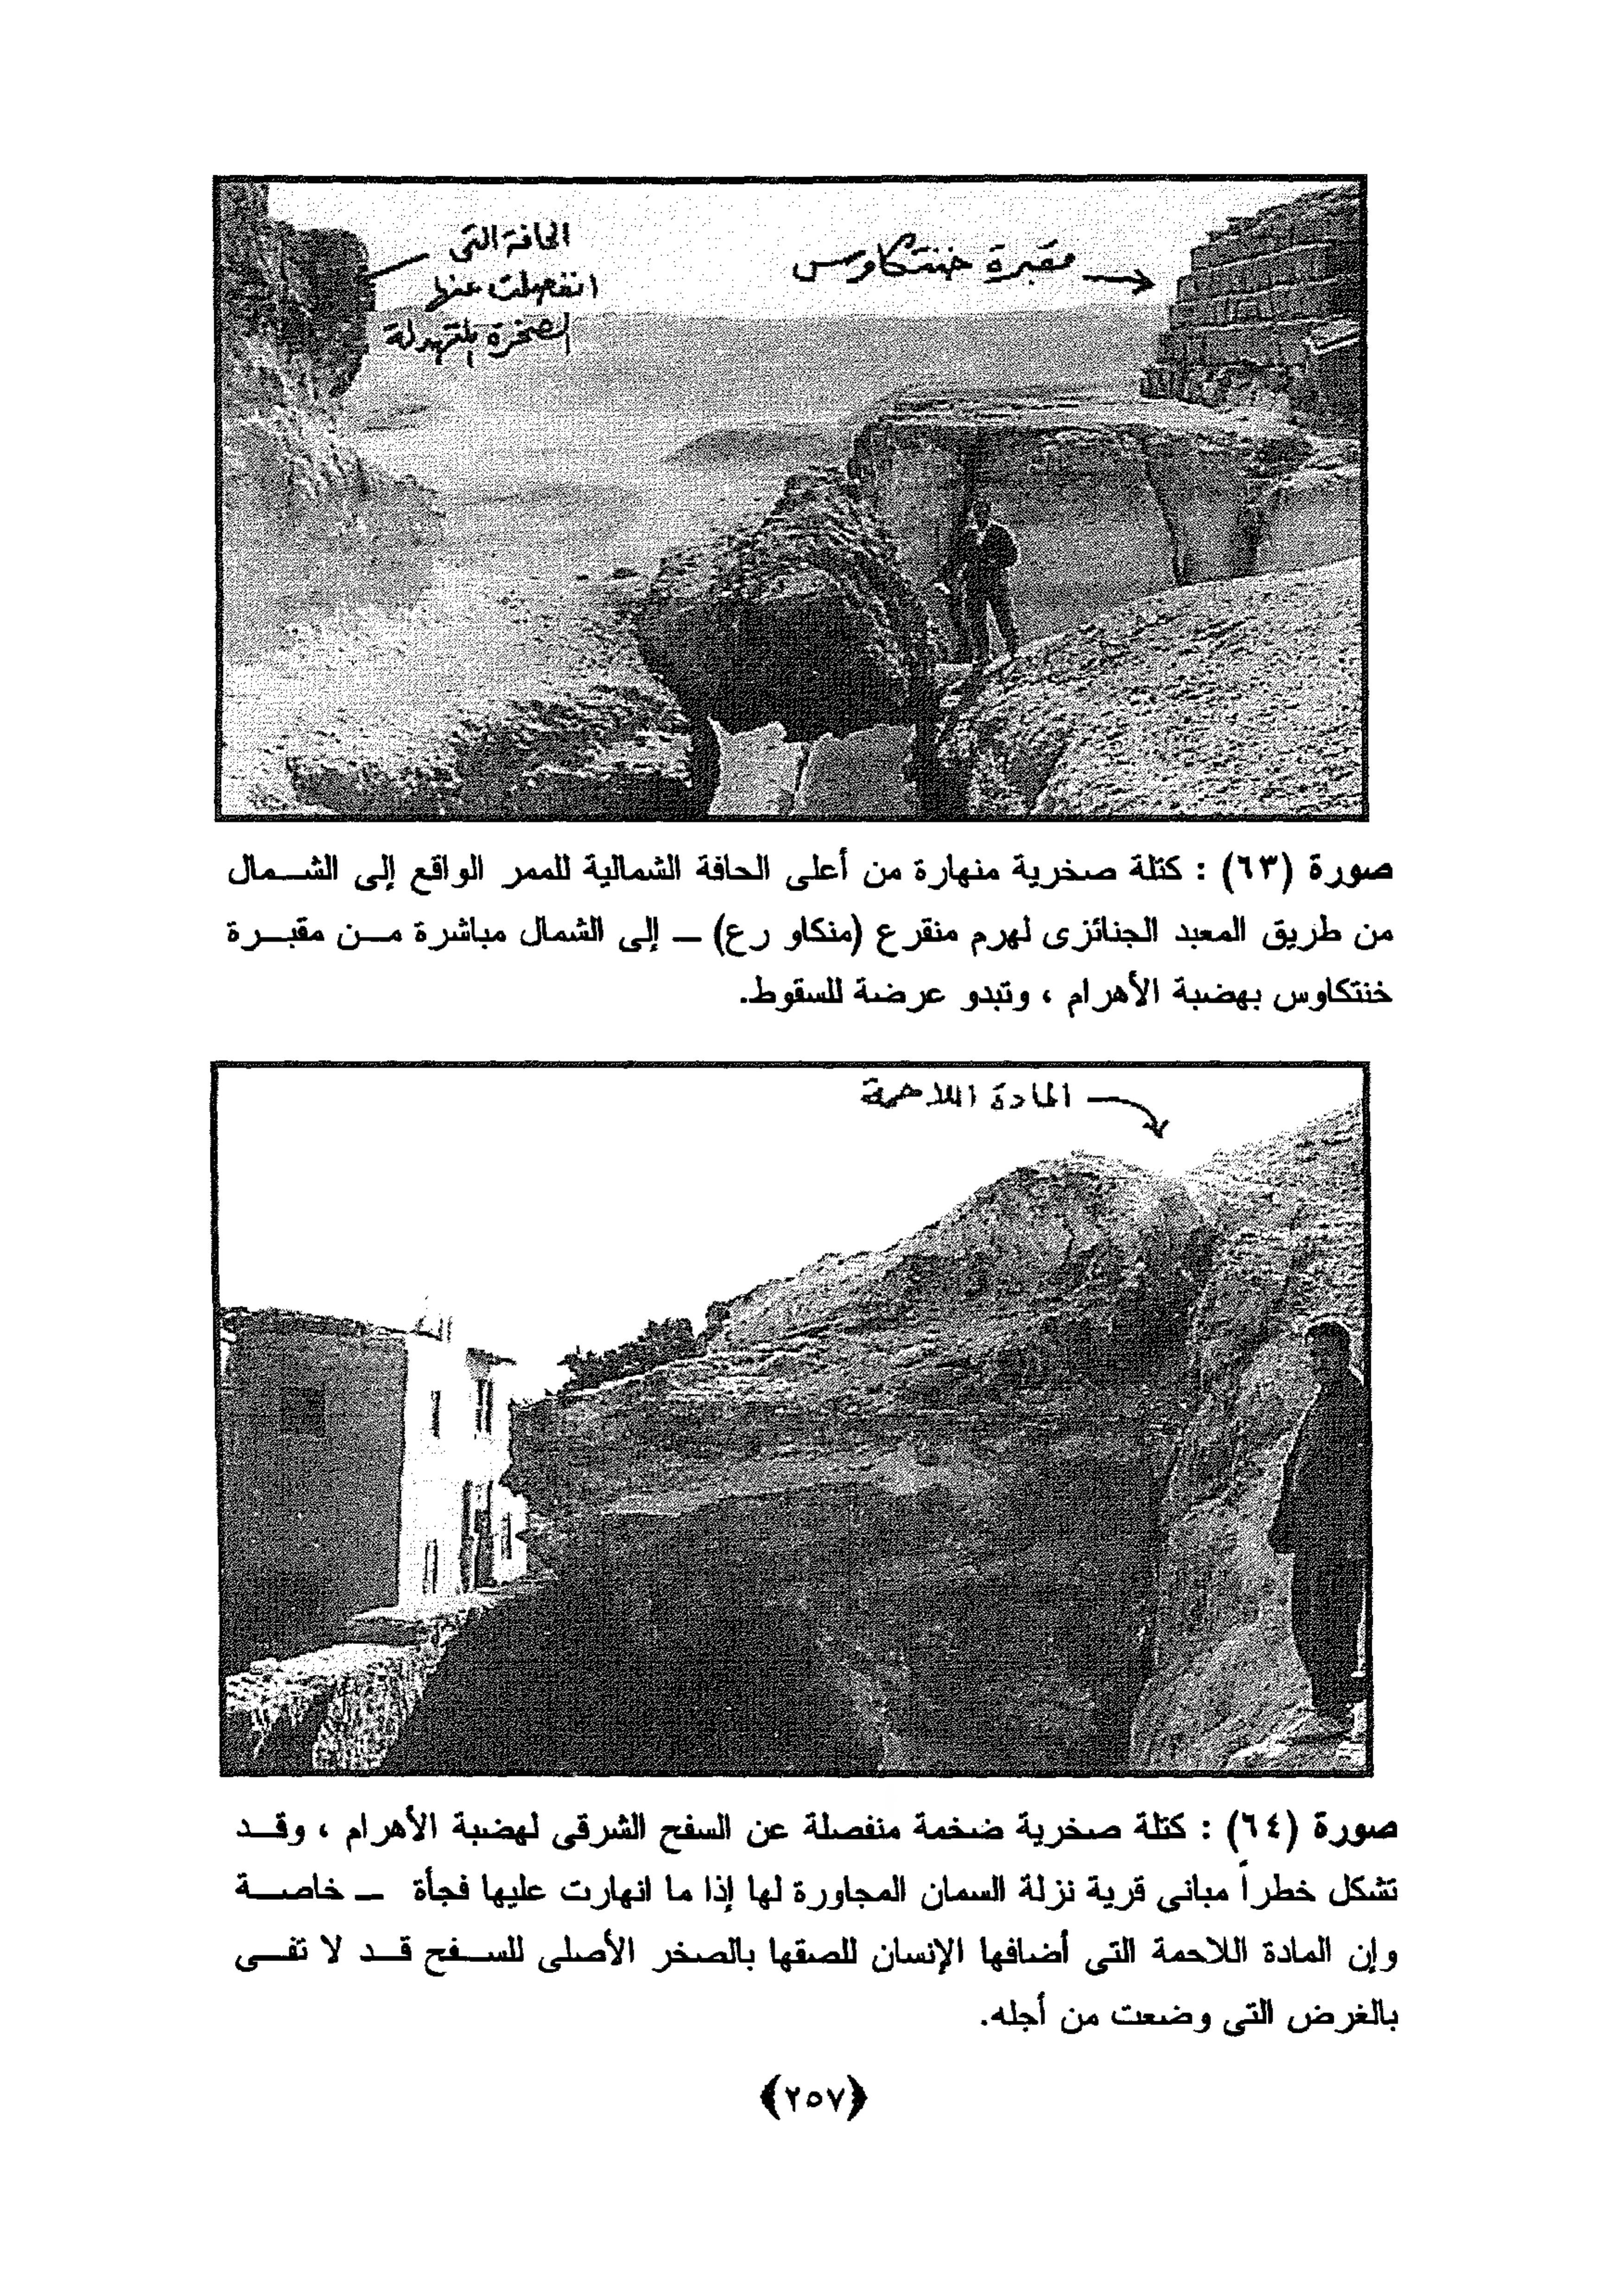 الحافة التى
انفصلت عنها
الصخرة المتهدلة
مقبرة خنتكاوس
صورة (٦٣) : كتلة صخرية منهارة من أعلى الحافة الشمالية للممر الواقع إلى الشمال
من طريق المعبد الجنائزى لهرم منقرع (منكاو رع) – إلى الشمال مباشرة من مقبرة
خنتكاوس بهضبة الأهرام ، وتبدو عرضة للسقوط.
المادة اللاحمة
صورة (٦٤) : كتلة صخرية ضخمة منفصلة عن السفح الشرقى لهضبة الأهرام ، وقد
تشكل خطراً مبانى قرية نزلة السمان المجاورة لها إذا ما انهارت عليها فجأة – خاصة
وإن المادة اللاحمة التى أضافها الإنسان للصقها بالصخر الأصلى للسفح قد لا تفى
بالغرض التى وضعت من أجله.
﴿٢٥٧﴾